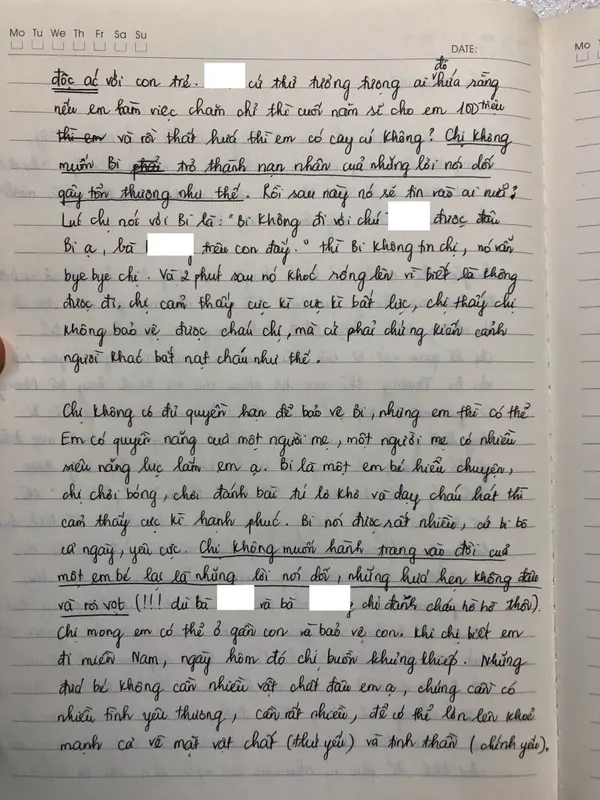 Mo Tu We Th Fr Sa Su
DATE:
Mo T
đó
độc ác với con trẻ. cứ thử tưởng tượng ai hứa rằng
nếu em làm việc chăm chỉ thì cuối năm sẽ cho em 100 triệu
thì em và rồi thất hứa thì em có cay cú không? Chị không
muốn Bi phải trở thành nạn nhân của những lời nói dối
gây tổn thương như thế. Rồi sau này nó sẽ tin vào ai nữa?
Lút chị nói với Bi là: "Bi không đi với chú được đâu
Bi ạ, bà trêu con đấy." thì Bi không tin chị, nó vẫn
bye bye chị. Và 2 phút sau nó khóc rống lên vì biết là không
được đi, chị cảm thấy cực kì cực kì bất lực, chị thấy chị
không bảo vệ được cháu chị, mà cứ phải chứng kiến cảnh
người khác bắt nạt cháu như thế.
Chị không có đủ quyền hạn để bảo vệ Bi, nhưng em thì có thể
Em có quyền năng của một người mẹ, một người mẹ có nhiều
siêu năng lực lắm em ạ. Bi là một em bé hiểu chuyện,
chị chơi bóng, chơi đánh bài tú lơ khơ và dạy cháu hát thì
cảm thấy cực kì hạnh phúc. Bi nói được rất nhiều, cứ bi bô
cả ngày, yêu cực. Chị không muốn hành trang vào đời của
một em bé lại là những lời nói dối, những hứa hẹn không đâu
và roi vọt (!!! dù bà và bà chỉ đánh cháu hờ hờ thôi).
Chị mong em có thể ở gần con và bảo vệ con. Khi chị biết em
đi miền Nam, ngày hôm đó chị buồn khủng khiếp. Những
đứa bé không cần nhiều vật chất đâu em ạ, chúng cần có
nhiều tình yêu thương, cần rất nhiều, để có thể lớn lên khoẻ
mạnh cả về mặt vật chất (thứ yếu) và tinh thần (chính yếu).